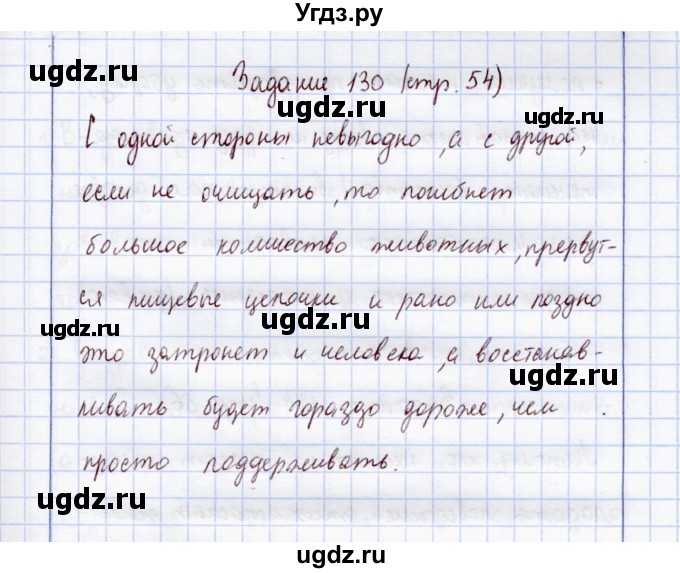 Угдз.ру
ugdz.ru ugdz.ru
Задание 130 (стр. 54)
ugdz.ru ugdz.ru
С одной стороны невыгодно, а с другой,
если не очищать, то погибнет
большое количество животных, прервут-
ся пищевые цепочки и рано или поздно
ugdz.ru ugdz.ru
это затронет и человека, а восстанав-
ugdz.ru
ливать будет гораздо дороже, чем
просто поддерживать.
ugdz.ru ugdz.ru
ugdz.ru